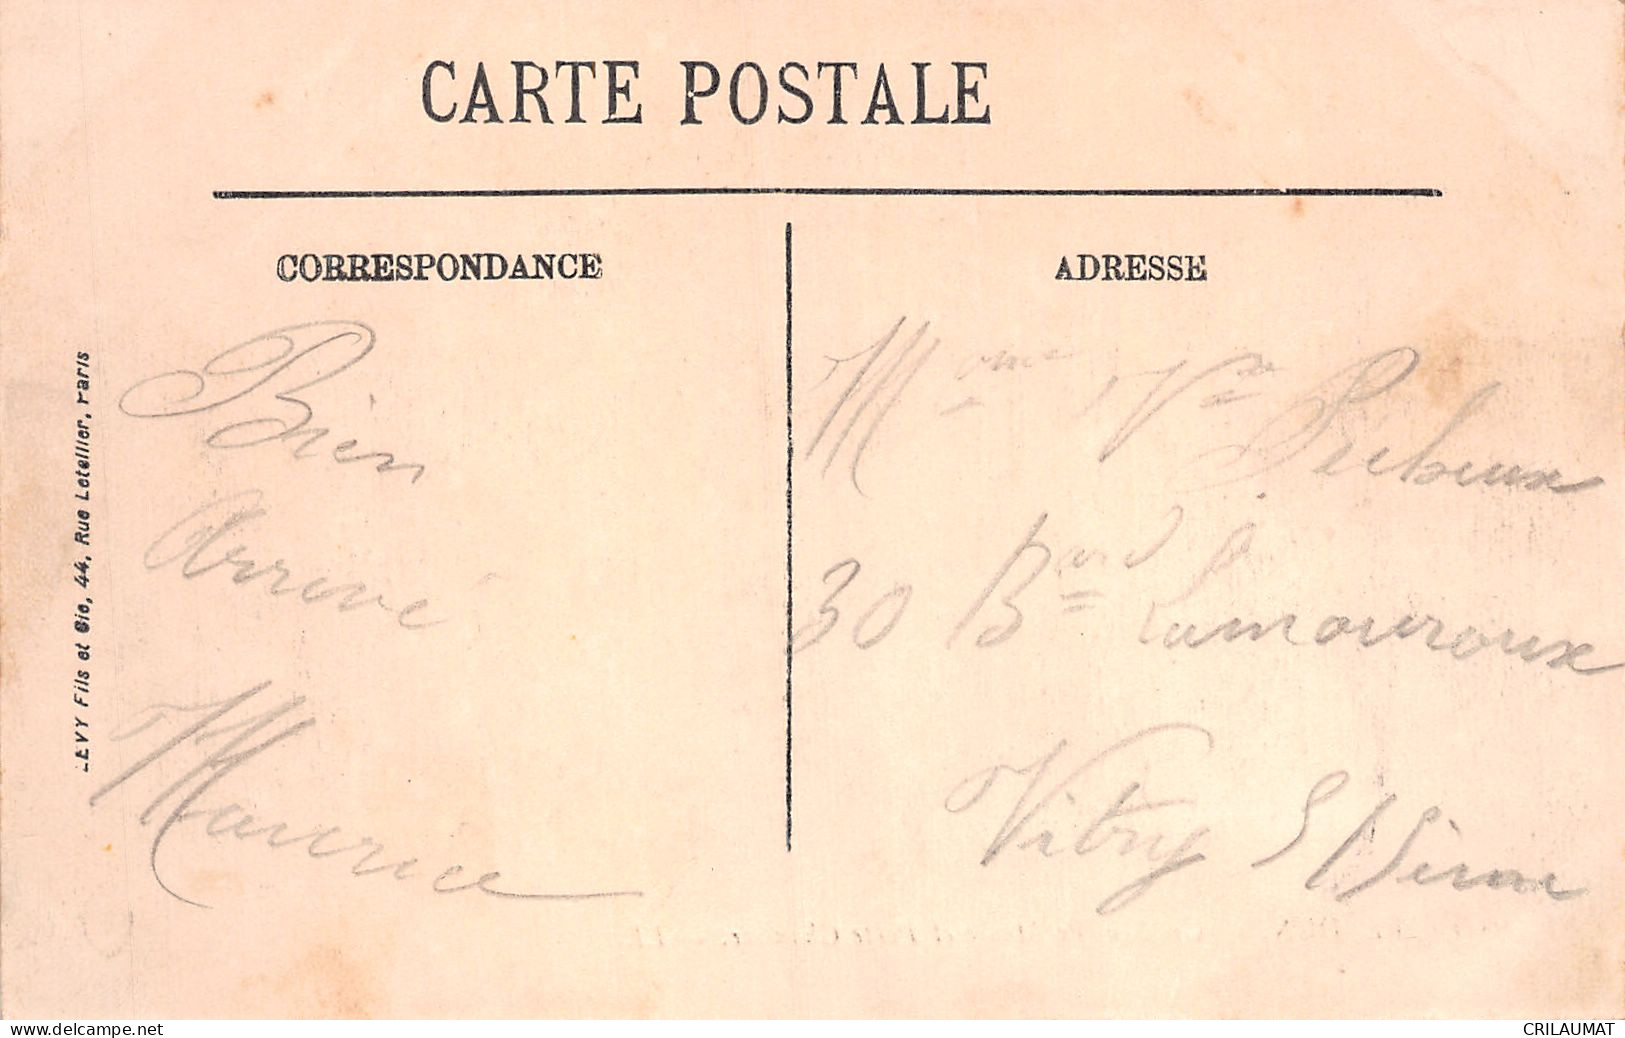 CARTE POSTALE
CORRESPONDANCE
ADRESSE
LEVY Fils et Cie, 44, Rue Letellier, Paris
Bien
Arrivé
Maurice
Mme Vve
30 Bard Lamouroux
Vitry S/Seine
CRILAUMAT